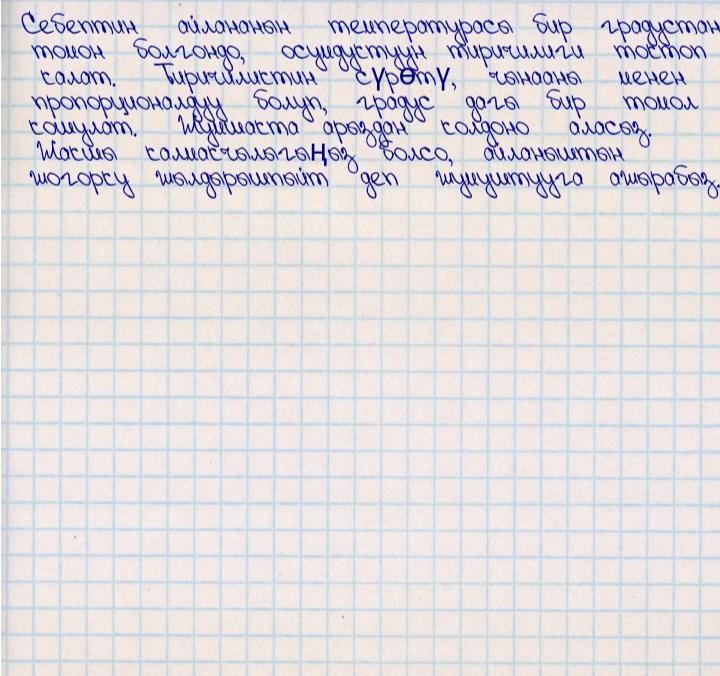 Себептин айлананын температурасы бир градустан
томон болгондо, осумдустуун тиричилиги тостоп
калат. Тиричиликтин сүрөтү, чынааны менен
пропорционалдуу болуп, градус дагы бир томол
кошулат. Жумшакта арыздан колдоно аласыз.
Жакшы калмасчылыгыңыз болсо, айланыштын
жогорку жылдырышпыйт деп жумуштууга ашырабыз.